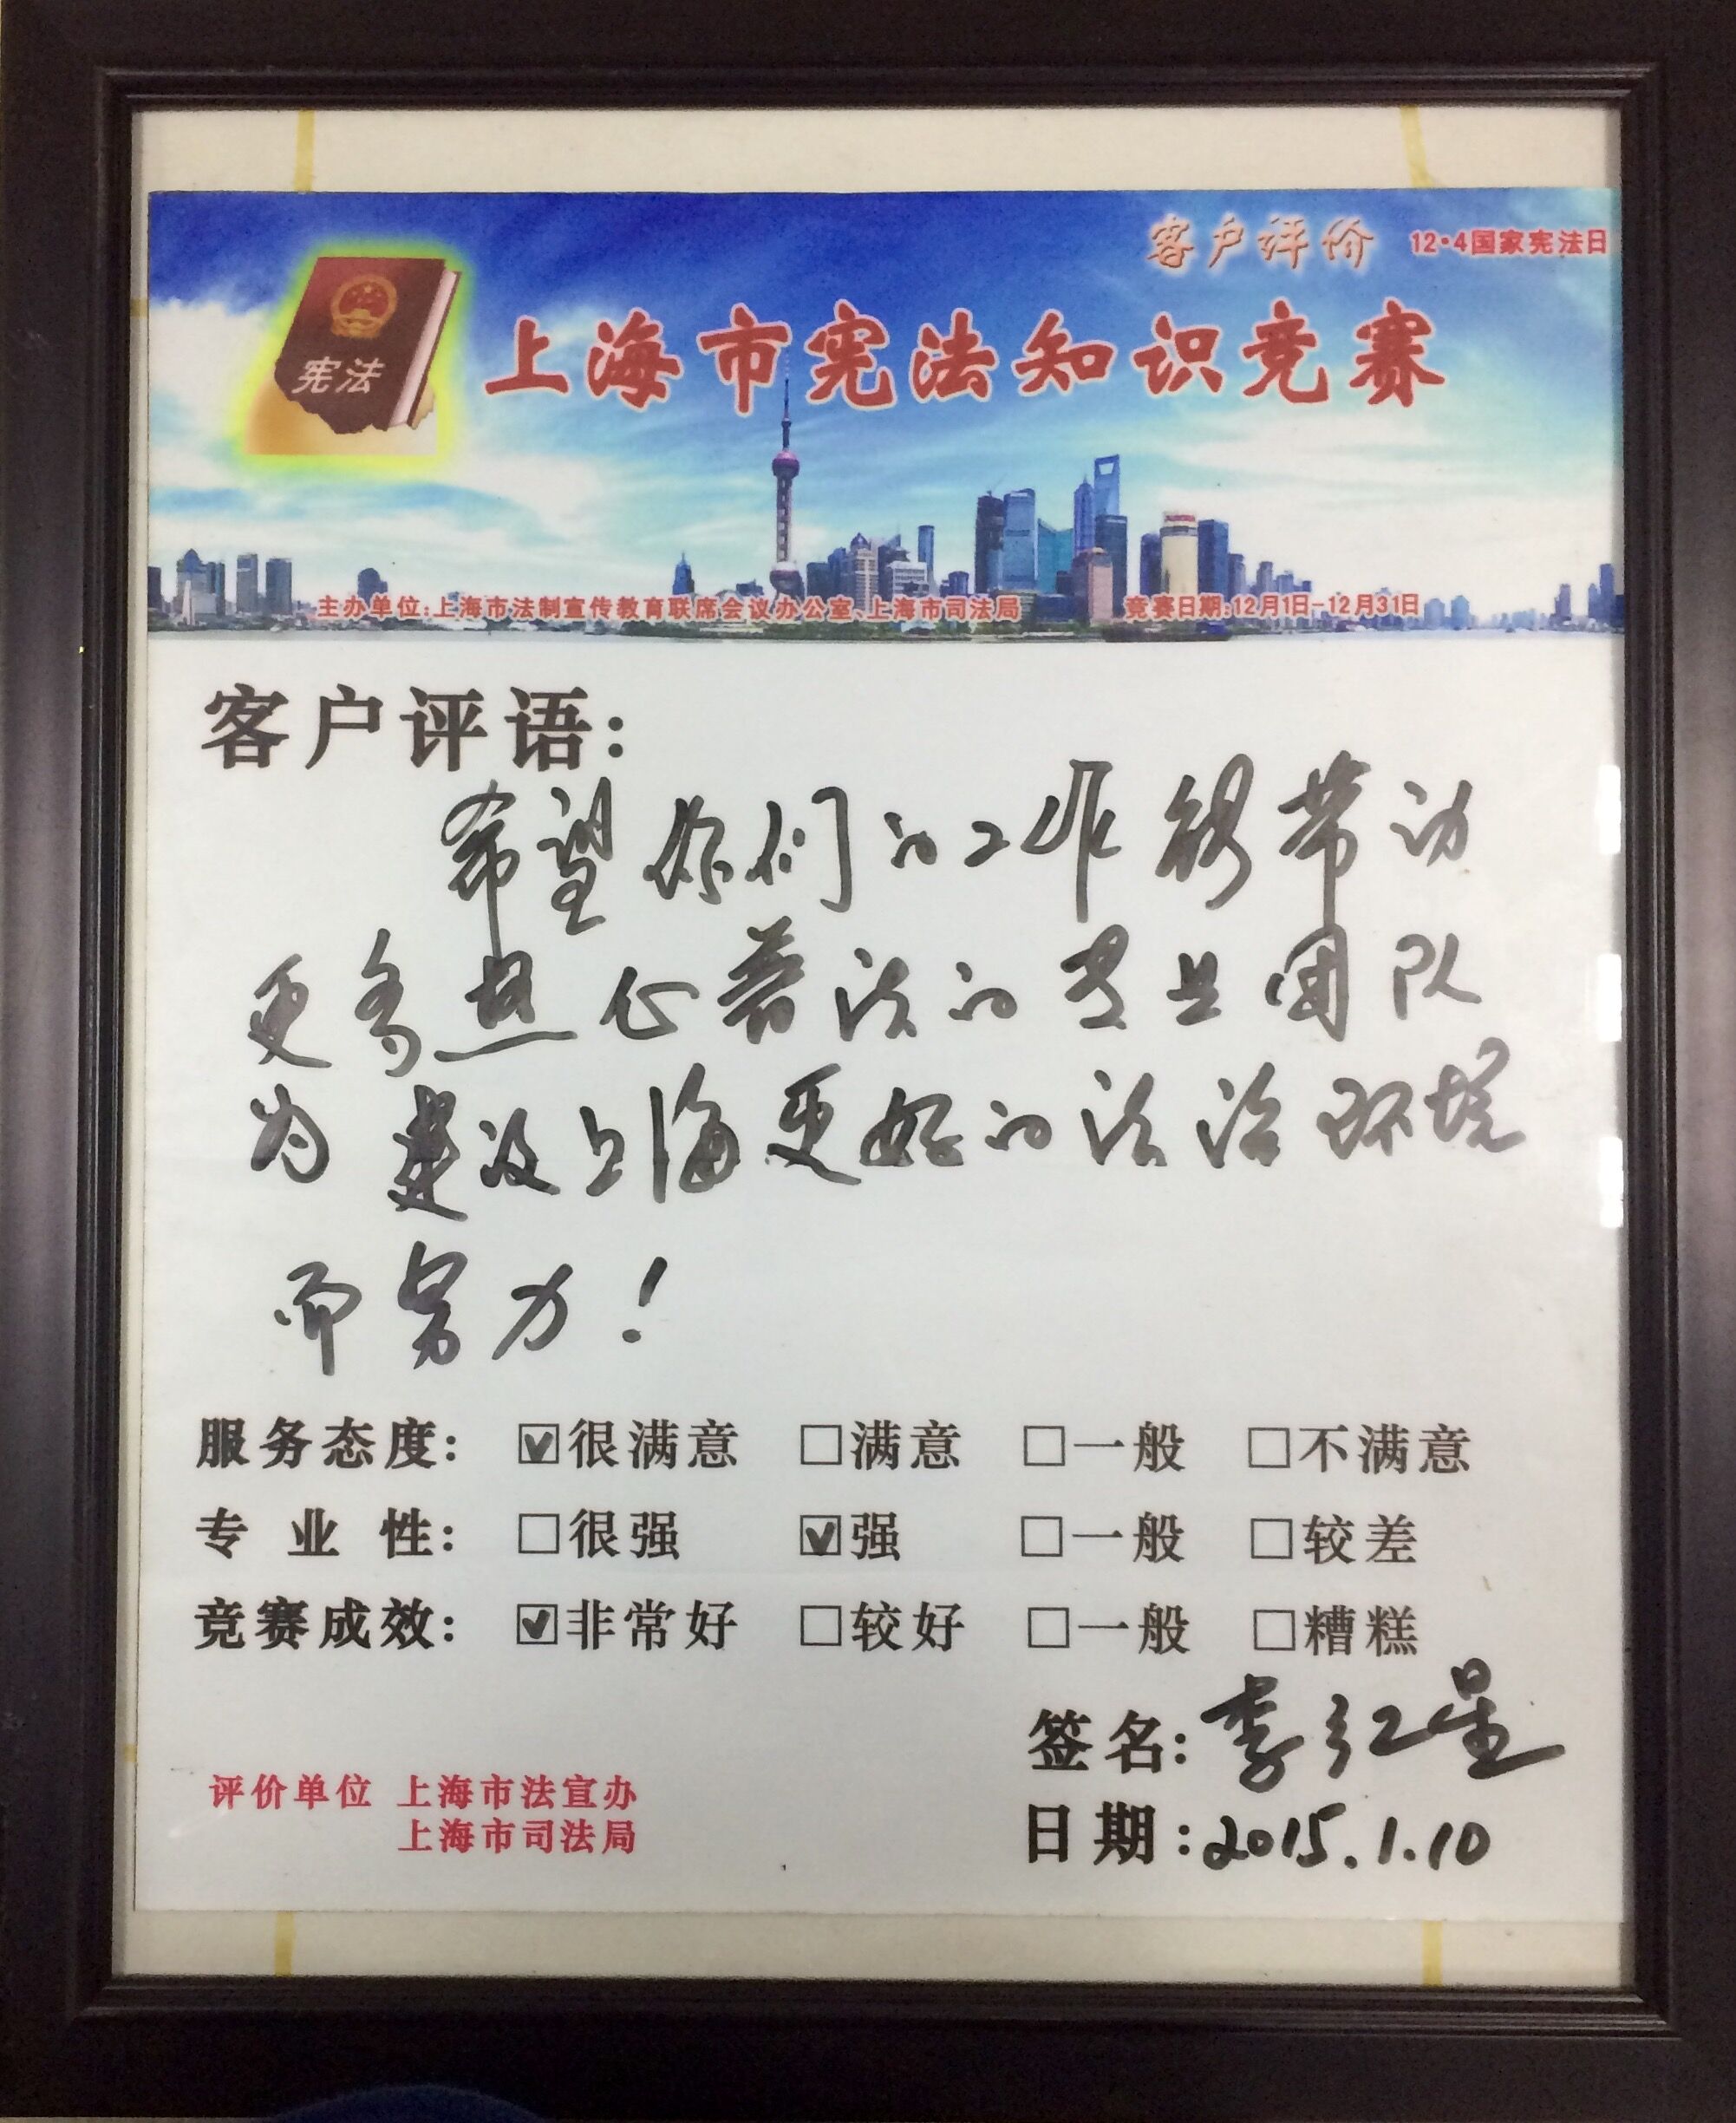 客户评价 12·4国家宪法日
宪法
上海市宪法知识竞赛
主办单位:上海市法制宣传教育联席会议办公室、上海市司法局 竞赛日期:12月1日-12月31日
客户评语:
希望你们的工作能带动
更多热心普法的专业团队
为建设上海更好的法治环境
而努力！
服务态度: ☑很满意 □满意 □一般 □不满意
专业性: □很强 ☑强 □一般 □较差
竞赛成效: ☑非常好 □较好 □一般 □糟糕
签名:李红星
评价单位 上海市法宣办
上海市司法局
日期:2015.1.10